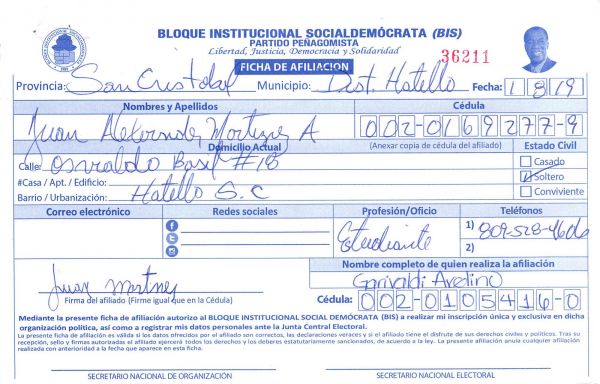 BLOQUE INSTITUCIONAL SOCIALDEMÓCRATA (BIS)
PARTIDO PEÑAGOMISTA
Libertad, Justicia, Democracia y Solidaridad
36211
FICHA DE AFILIACION
Provincia: San Cristobal Municipio: Dist. Hatillo Fecha: 1 8 19
Nombres y Apellidos Cédula
Juan Alexander Martinez A 002-0169277-9
Domicilio Actual (Anexar copia de cédula del afiliado) Estado Civil
Calle: Osvaldo Basil #18 Casado
#Casa / Apt. / Edificio: Soltero
Barrio / Urbanización: Hatillo S.C Conviviente
Correo electrónico Redes sociales Profesión/Oficio Teléfonos
Estudiante 1) 809-528-4606
2)
Nombre completo de quien realiza la afiliación
Juan Martnez Garivaldi Avelino
Firma del afiliado (Firme igual que en la Cédula) Cédula: 002-0105416-0
Mediante la presente ficha de afiliación autorizo al BLOQUE INSTITUCIONAL SOCIAL DEMÓCRATA (BIS) a realizar mi inscripción única y exclusiva en dicha
organización política, así como a registrar mis datos personales ante la Junta Central Electoral.
La presente ficha de afiliación es válida si los datos ofrecidos por el afiliado son correctos, las declaraciones veraces y si el afiliado tiene el disfrute de sus derechos civiles y políticos. Tras su
recepción, sello y firmas autorizadas el afiliado ejercerá todos los derechos y los deberes estatutariamente sancionados, de acuerdo a la ley. La presente afiliación anula cualquier afiliación
realizada con anterioridad a la fecha que aparece en esta ficha.
SECRETARIO NACIONAL DE ORGANIZACIÓN SECRETARIO NACIONAL ELECTORAL